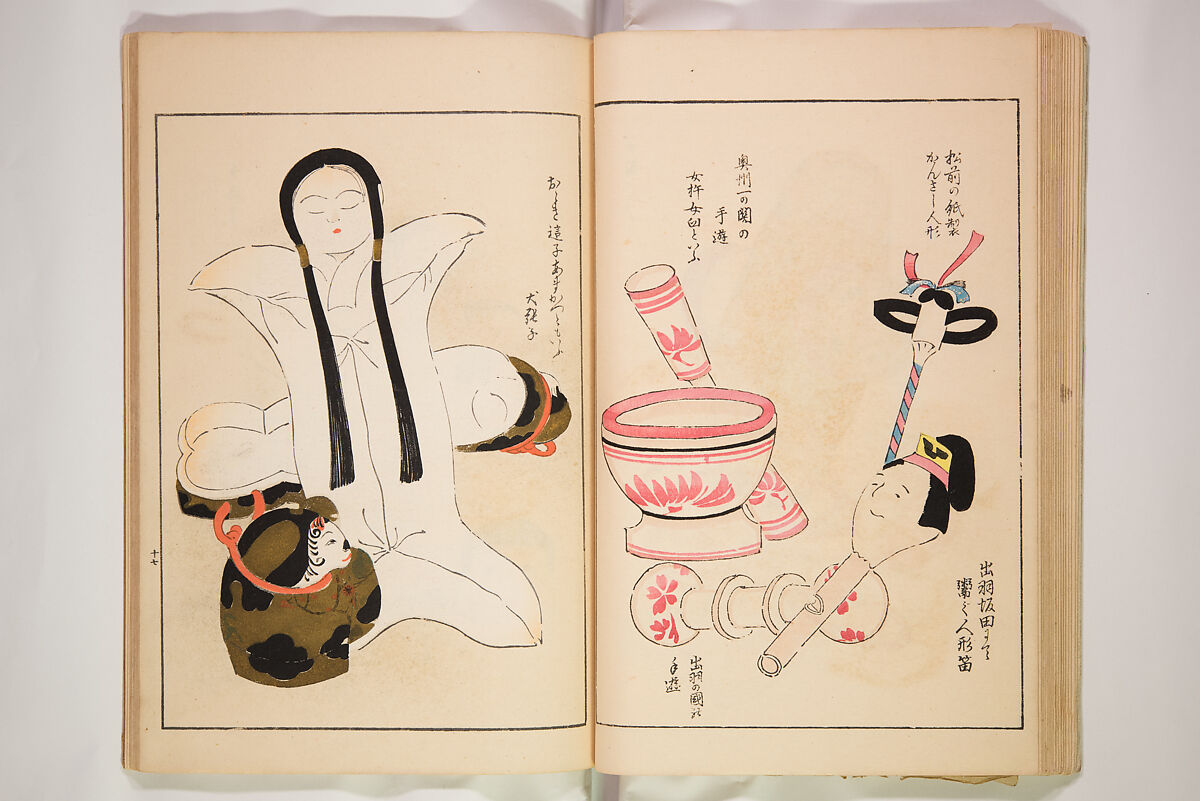 松前の紙製
かんざし人形
奥州一の関の
手遊
女杵女臼といふ
出羽坂田にて
鬻ぐ人形笛
出羽の國の
手遊
子あまがつともいふ
犬張子
十七